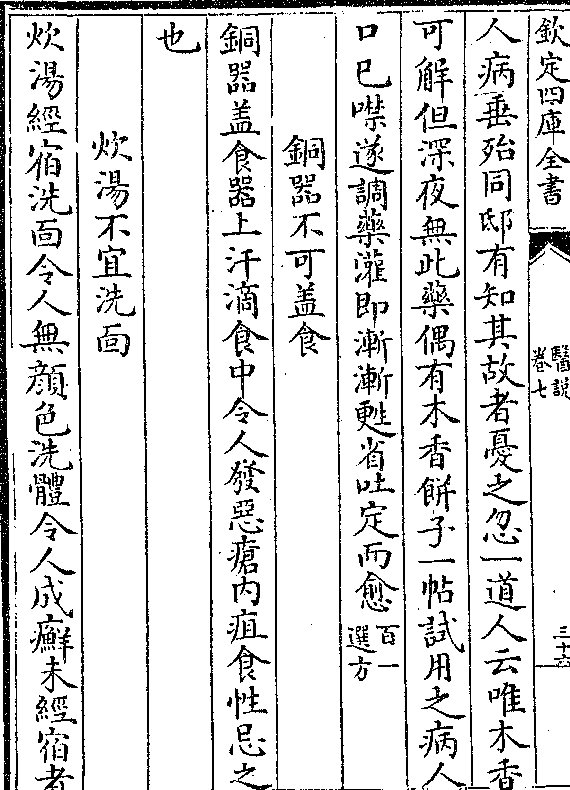 欽定四庫全書
醫説
卷七
三十六
人病垂殆同邸有知其故者憂之忽一道人云唯木香
可解但深夜無此藥偶有木香餅子一帖試用之病人
口已噤遂調藥灌即漸漸甦省吐定而愈百一選方
銅器不可盖食
銅器盖食器上汗滴食中令人發惡瘡内疽食性忌之
也
炊湯不宜洗面
炊湯經宿洗面令人無顔色洗體令人成癬未經宿者